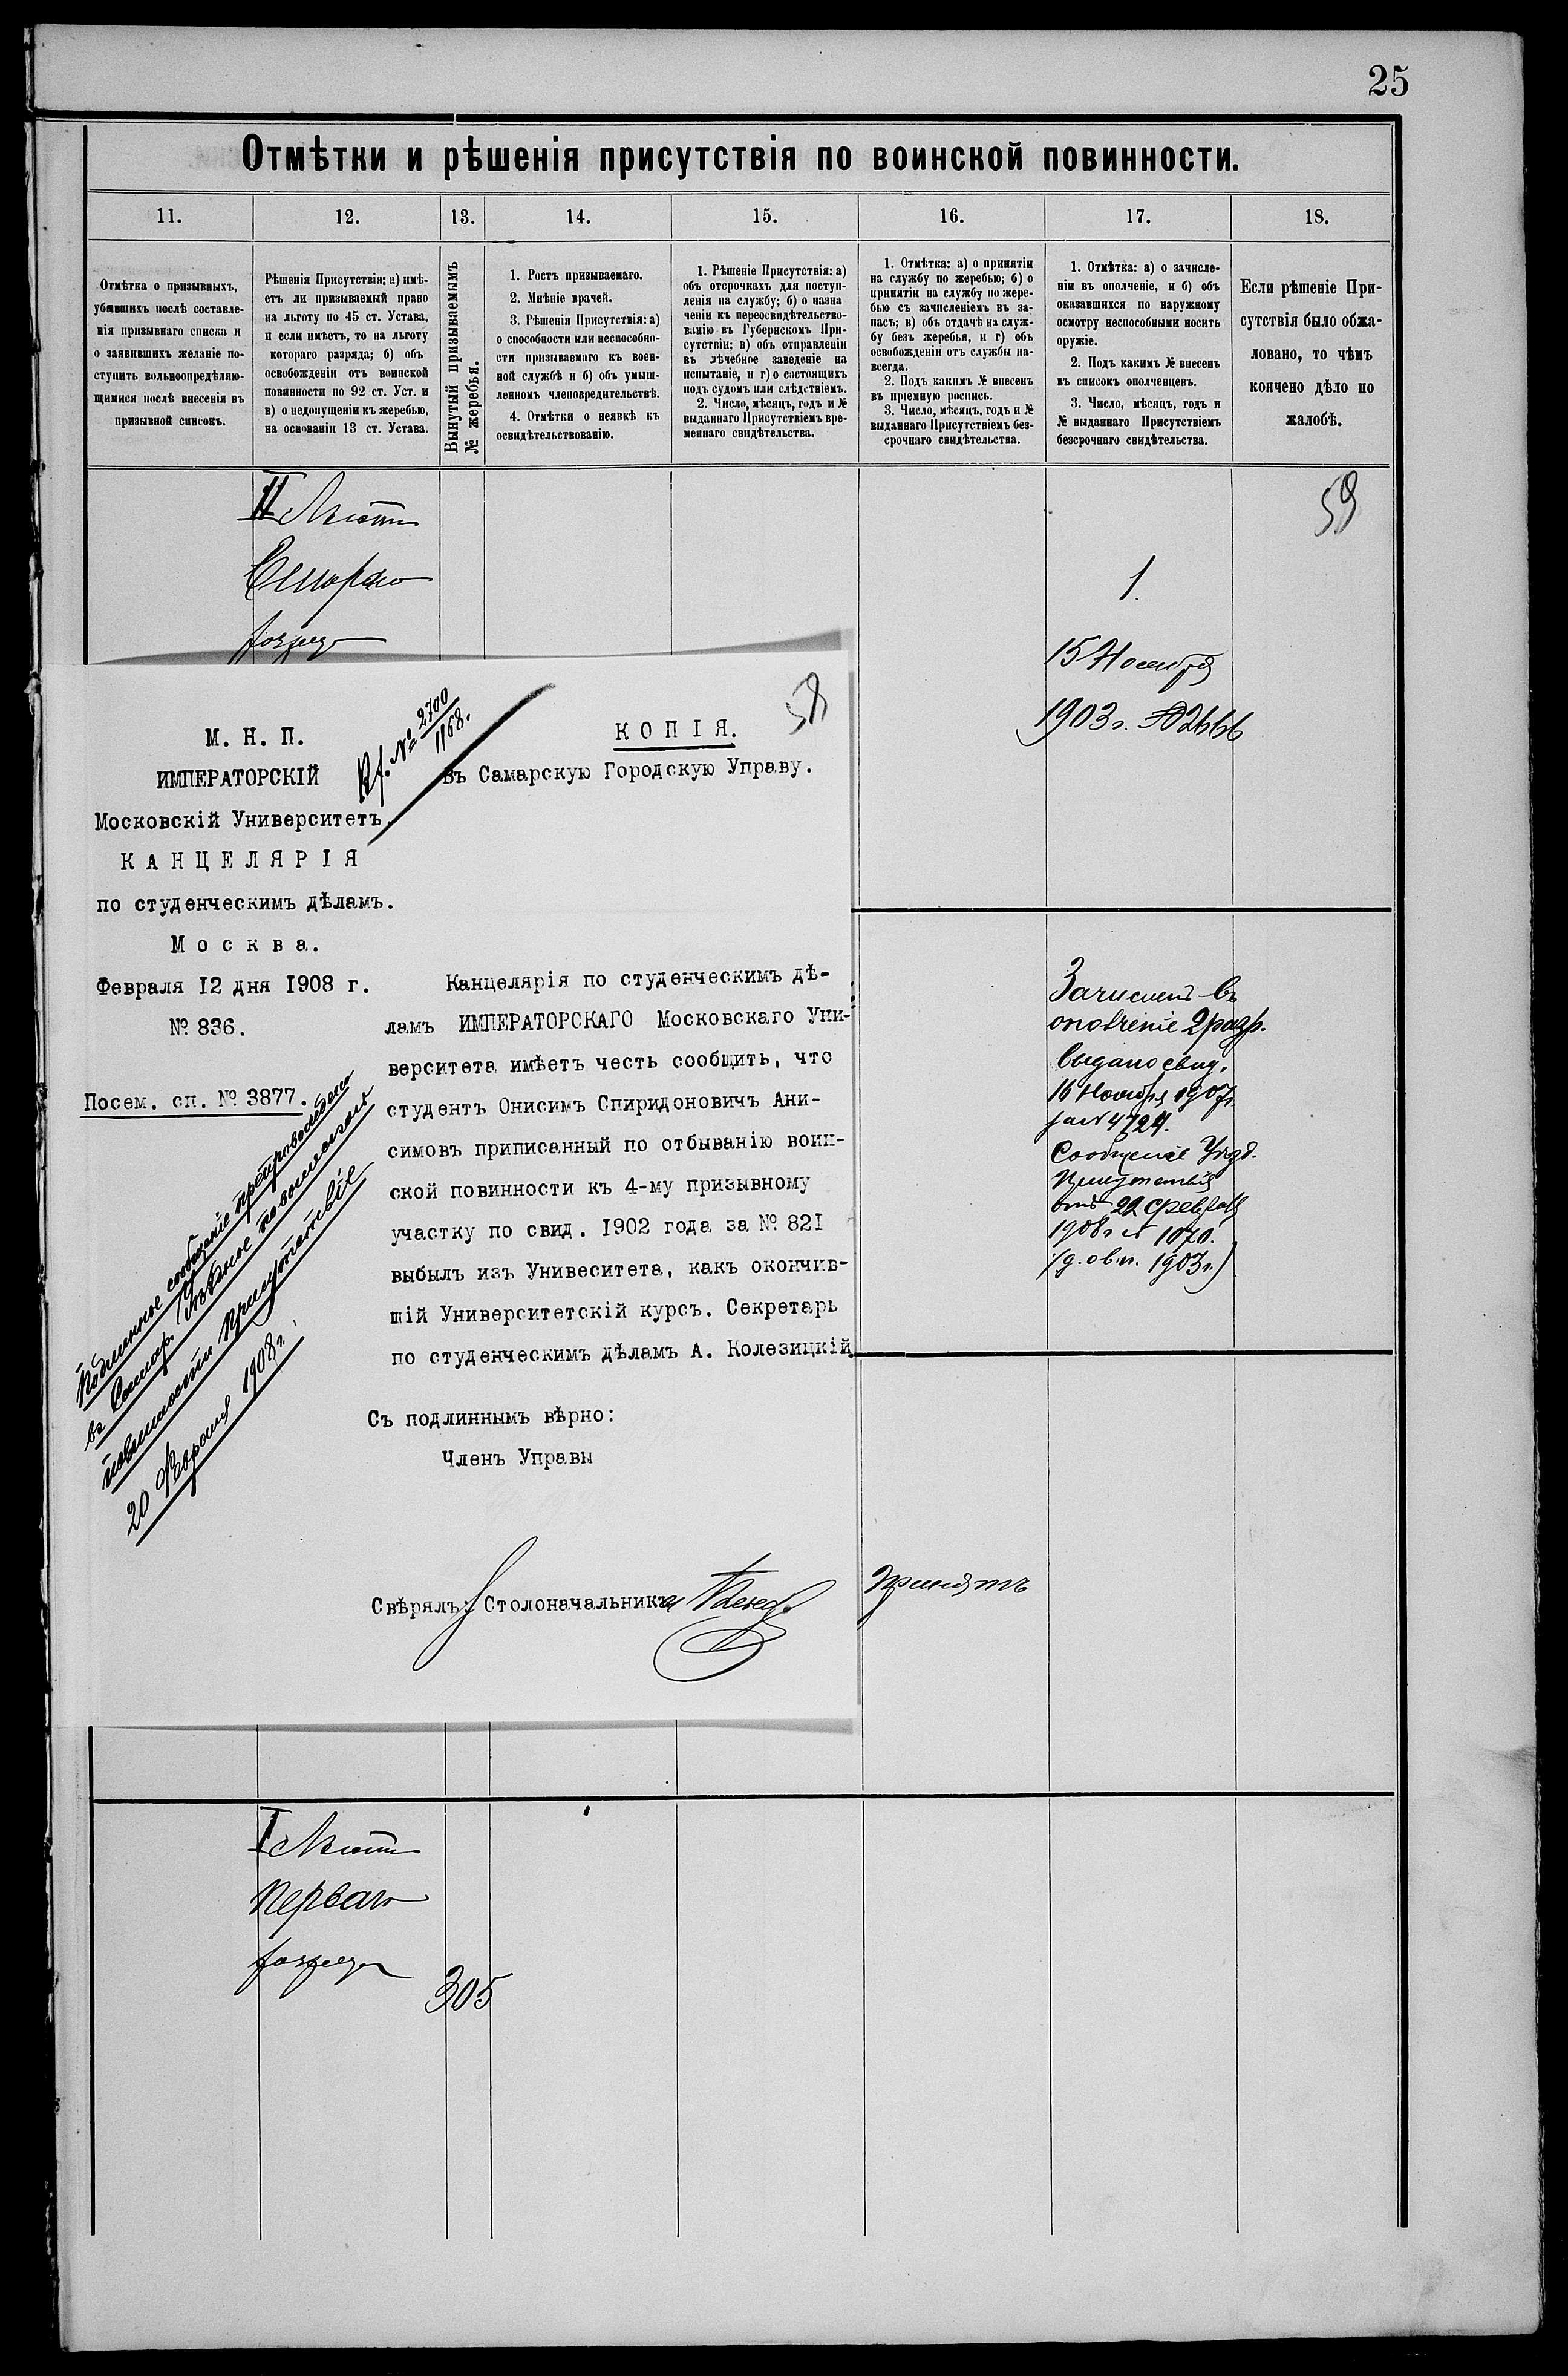 25
Отмѣтки и рѣшенія присутствія по воинской повинности.
11.
12.
13.
14.
15.
16.
17.
18.
Отмѣтка о призывныхъ,
убывшихъ послѣ составле-
нія призывнаго списка и
о заявившихъ желаніе по-
ступить вольноопредѣляю-
щимися послѣ внесенія въ
призывной списокъ.
Рѣшенія Присутствія: а) имѣ-
етъ ли призываемый право
на льготу по 45 ст. Устава,
и если имѣетъ, то на льготу
котораго разряда; б) объ
освобожденіи отъ воинской
повинности по 92 ст. Уст. и
в) о недопущеніи къ жеребью,
на основаніи 13 ст. Устава.
Вынутый призываемымъ
№ жеребья.
1. Ростъ призываемаго.
2. Мнѣніе врачей.
3. Рѣшенія Присутствія: а)
о способности или неспособно-
сти призываемаго къ воен-
ной службѣ и б) объ умыш-
ленномъ членовредительствѣ.
4. Отмѣтки о неявкѣ къ
освидѣтельствованію.
1. Рѣшеніе Присутствія: а)
объ отсрочкахъ для поступ-
ленія на службу; б) о назна
ченіи къ переосвидѣтельство-
ванію въ Губернскомъ При-
сутствіи; в) объ отправленіи
въ лѣчебное заведеніе на
испытаніе, и г) о состоящихъ
подъ судомъ или слѣдствіемъ.
2. Число, мѣсяцъ, годъ и №
выданнаго Присутствіемъ вре-
меннаго свидѣтельства.
1. Отмѣтка: а) о принятіи
на службу по жеребью; б) о
принятіи на службу по жере-
бью съ зачисленіемъ въ за-
пасъ; в) объ отдачѣ на служ-
бу безъ жеребья, и г) объ
освобожденіи отъ службы на-
всегда.
2. Подъ какимъ № внесенъ
въ пріемную роспись.
3. Число, мѣсяцъ, годъ и №
выданнаго Присутствіемъ без-
срочнаго свидѣтельства.
1. Отмѣтка: а) о зачисле-
ніи въ ополченіе, и б) объ
оказавшихся по наружному
осмотру неспособными носить
оружіе.
2. Подъ какимъ № внесенъ
въ списокъ ополченцевъ.
3. Число, мѣсяцъ, годъ и
№ выданнаго Присутствіемъ
безсрочнаго свидѣтельства.
Если рѣшеніе При-
сутствія было обжа-
ловано, то чѣмъ
кончено дѣло по
жалобѣ.
II Льготы
Второго
разряда
59
1.
15 Ноября
1903 г. № 2666
№ 2700
1168.
М. Н. П.
ИМПЕРАТОРСКІЙ
Московскій Университетъ.
КАНЦЕЛЯРІЯ
по студенческимъ дѣламъ.
Москва.
Февраля 12 дня 1908 г.
№ 836.
Посем. сп. № 3877.
КОПІЯ.
Въ Самарскую Городскую Управу.
Канцелярія по студенческимъ дѣ-
ламъ ИМПЕРАТОРСКАГО Московскаго Уни-
верситета имѣетъ честь сообщить, что
студентъ Онисимъ Спиридоновичъ Ани-
симовъ приписанный по отбыванію воин-
ской повинности къ 4-му призывному
участку по свид. 1902 года за № 821
выбылъ изъ Универитета, какъ окончив-
шій Университетскій курсъ. Секретарь
по студенческимъ дѣламъ А. Колезицкій
Съ подлиннымъ вѣрно:
Членъ Управы
Свѣрялъ: Столоначальникъ
Подлинное сообщеніе препровождено
въ Самар. Уѣздное по воинской
повинности Присутствіе
20 Февраля 1908 г.
Зачисленъ въ
ополченіе 2 разр.
Выдано свид.
16 Ноября 1907 г.
за № 4724.
Сообщеніе Уѣзд.
Присутствія
отъ 22 февраля
1908 г. № 1070.
1903 г.)
Принятъ
I Льготы
Перваго
разряда
305